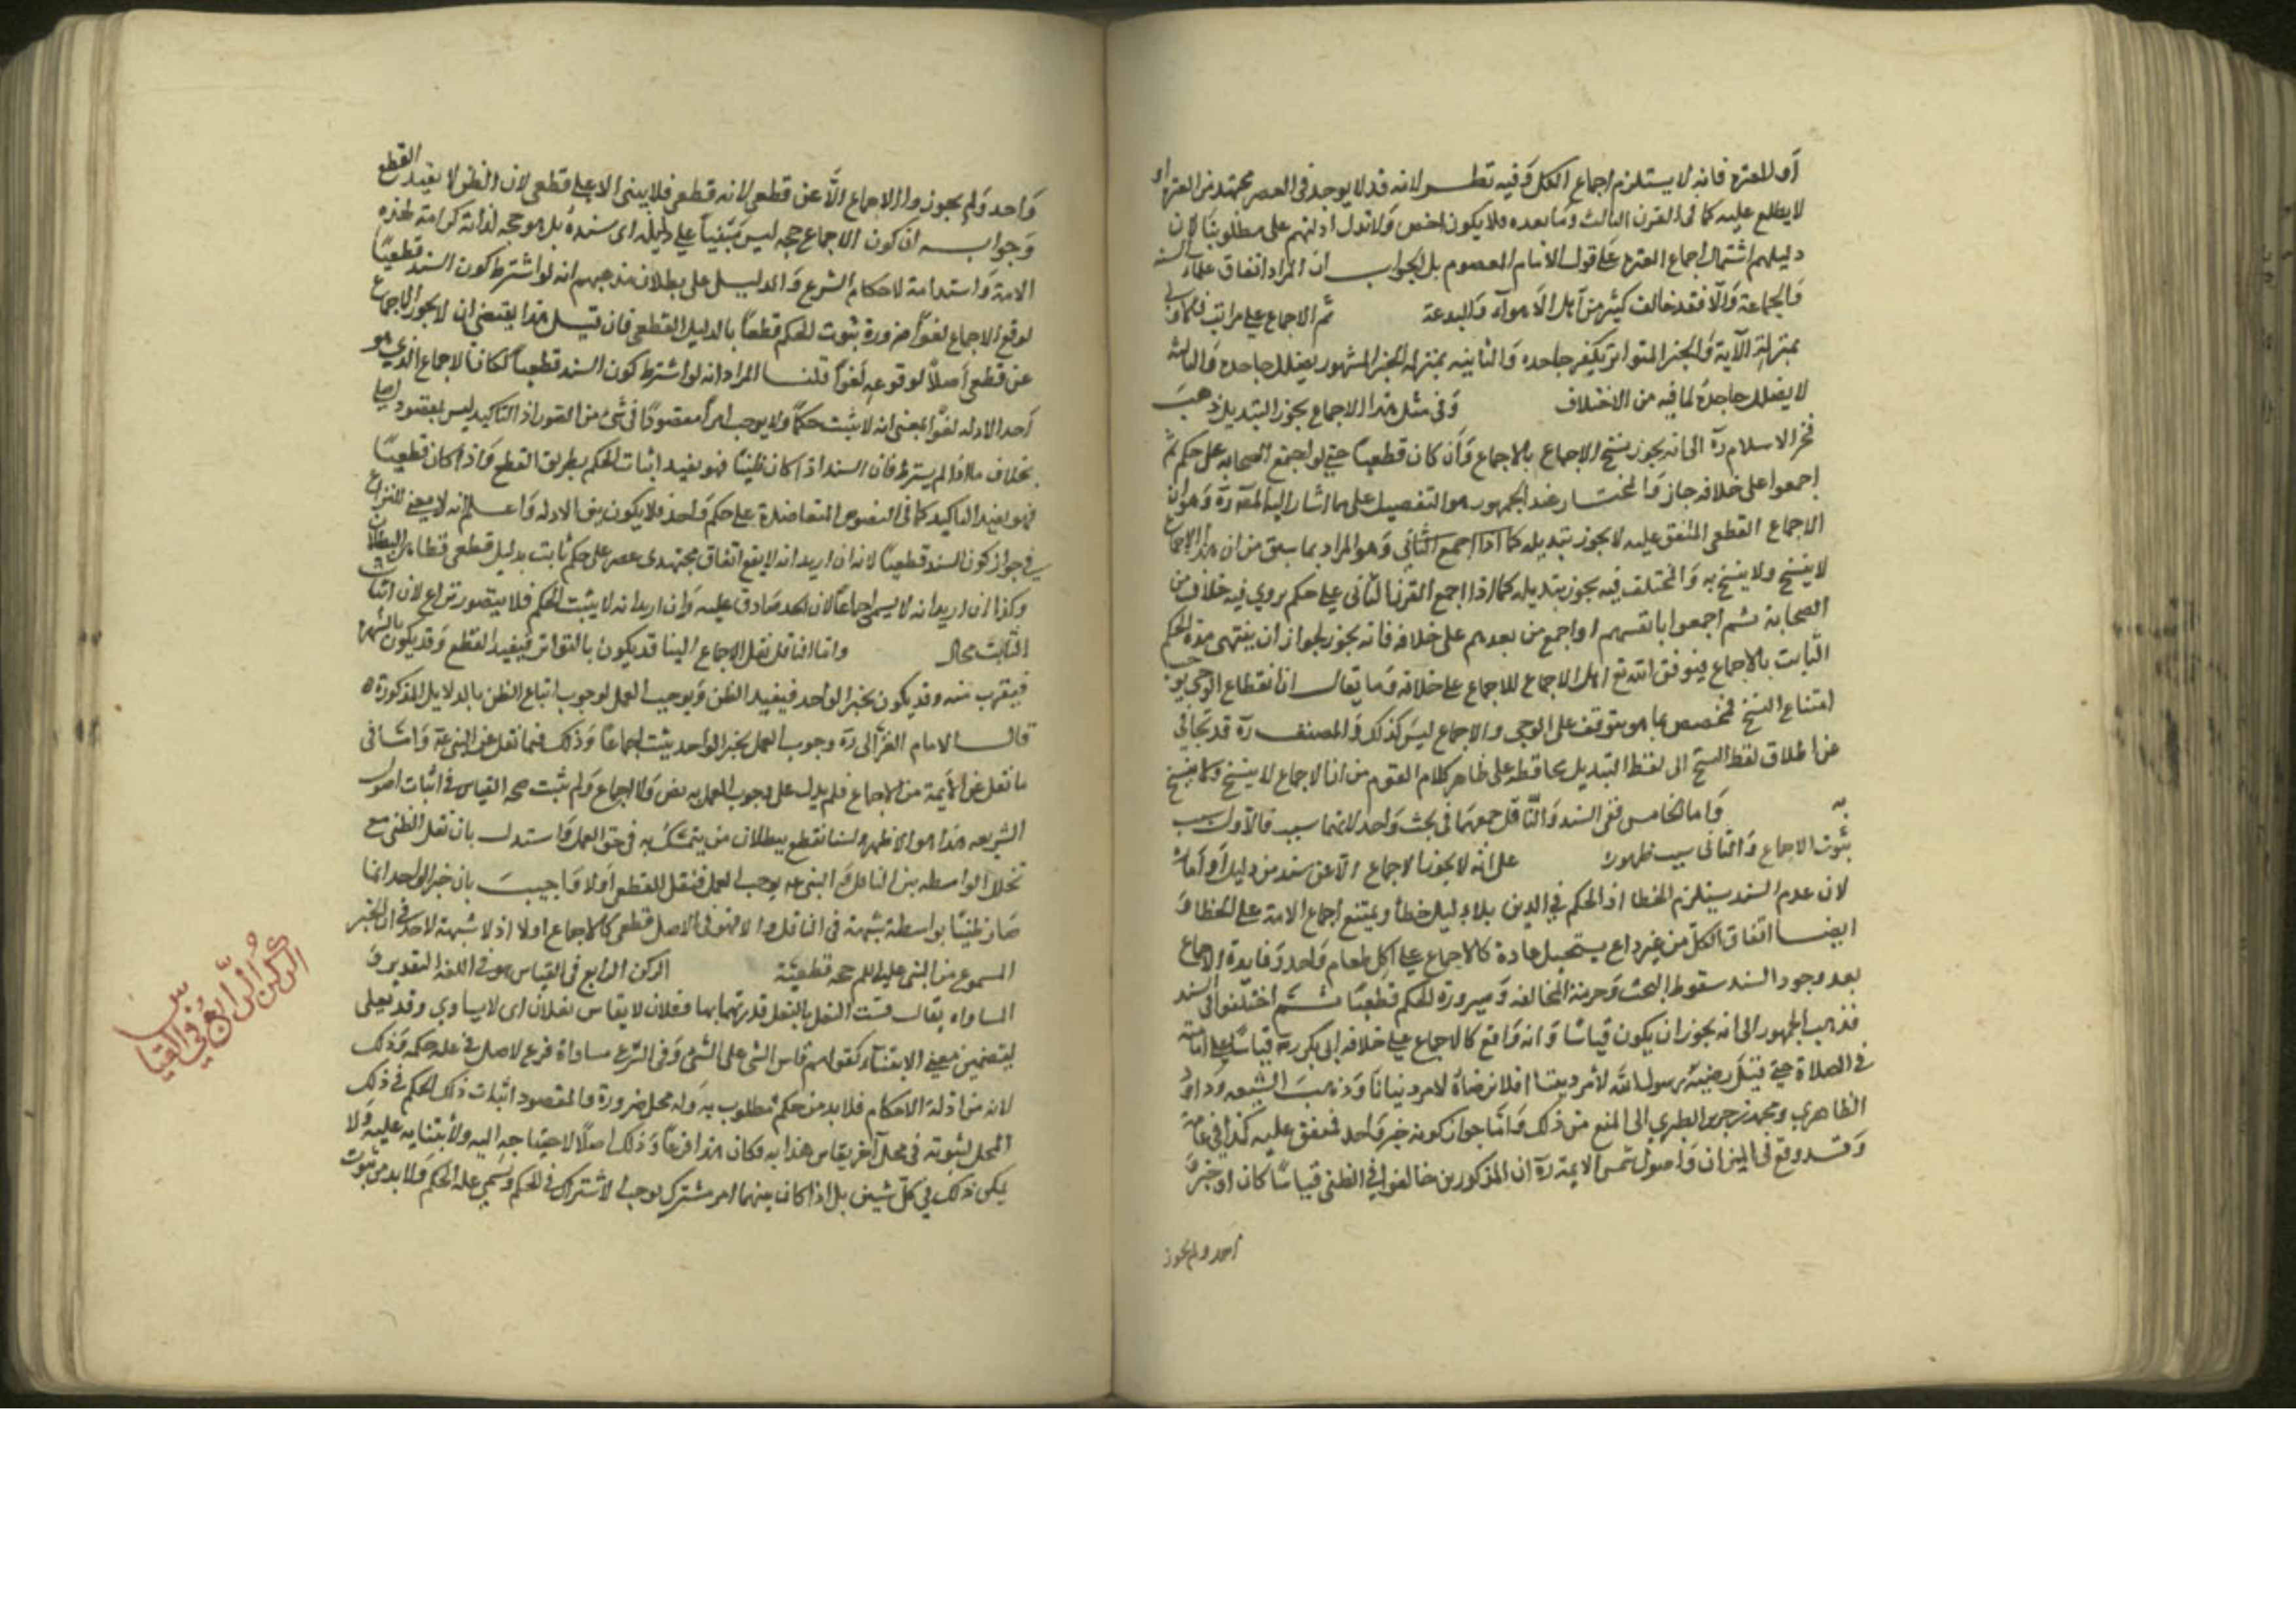 أو للعترة فانه لا يستلزم اجماع الكل وفيه نظر لانه قد لا يوجد في العصر مجتهد من العترة او
لا يطلع عليه كما فى القرن الثالث وما بعده فلا يكون اخص ولا تدل ادلتهم على مطلوبنا لان
دليلهم اشتمال اجماع العترة على قول الامام المعصوم بل الجواب ان المراد اتفاق علماء السنة
والجماعة والا فقد خالف كثير من اهل الاهواء والبدعة ثم الاجماع على مراتب فالاولى
بمنزلة الآية والخبر المتواتر يكفر جاحده والثانية بمنزلة الخبر المشهور يضلل جاحده والثالثة
لا يضلل جاحده لما فيه من الاختلاف وفى مثل هذا الاجماع يجوز التبديل ذهب
فخر الاسلام رة الى انه يجوز نسخ الاجماع بالاجماع وان كان قطعيا حتى لو اجتمع الصحابة على حكم ثم
اجمعوا على خلافه جاز والمختار عند الجمهور هو التفصيل على ما اشار اليه المص رة وهو ان
الاجماع القطعى المتفق عليه لا يجوز تبديله كما اذا اجمع الثاني وهو المراد بما سبق من ان هذا الاجماع
لا ينسخ ولا ينسخ به والمختلف فيه يجوز تبديله كما اذا اجمع القرن الثانى على حكم يروي فيه خلاف من
الصحابة ثم اجمعوا بانفسهم او اجمع من بعدهم على خلافه فانه يجوز لجواز ان ينتهى مدة الحكم
الثابت بالاجماع فيوفق الله تع اهل الاجماع للاجماع على خلافه وما يقال ان انقطاع الوحي يوجب
امتناع النسخ فمختص بما هو يتوقف على الوحي والاجماع ليس كذلك والمصنف رة قد تحاشى
عن اطلاق لفظ النسخ الى لفظ التبديل محافظة على ظاهر كلام القوم من ان الاجماع لا ينسخ ولا ينسخ
به واما الخامس ففى السند والناقل جمعهما فى بحث واحد لانهما سبب فالاول سبب
ثبوت الاجماع والثانى سبب ظهوره على انه لا يجوز الاجماع الا عن سند من دليل أو أمارة
لان عدم السند يستلزم الخطا اذ الحكم في الدين بلا دليل خطأ ويمتنع اجماع الامة على الخطا و
ايضا اتفاق الكل من غير داع يستحيل عادة كالاجماع على اكل طعام واحد وفايدة الاجماع
بعد وجود السند سقوط البحث وحرمة المخالفة وصيرورة الحكم قطعيا ثم اختلفوا فى السند
فذهب الجمهور الى انه يجوز ان يكون قياسا وانه واقع كالاجماع على خلافة ابى بكر رة قياسا على امامته
في الصلاة حتى قيل رضيه رسول الله لامر ديننا افلا نرضاه لامر دنيانا وذهب الشيعه وداود
الظاهري ومحمد بن جرير الطبري الى المنع من ذلك واما جواز كونه خبر واحد فمتفق عليه كذا في عامة
وقد وقع فى الميزان واصول شمس الايمة رة ان المذكورين خالفوا في الظنى قياسا كان او خبر
أحد ولم يجوز
واحد ولم يجوزوا الاجماع الا عن قطعى لانه قطعى فلا يبنى الا على قطعى لان الظن لا يفيد القطع
وجوابه ان كون الاجماع حجه ليس مبنيا على دليله اى سنده بل هو حجه لذاته كرامة لهذه
الامة واستدامة لاحكام الشرع والدليل على بطلان مذهبهم انه لو اشترط كون السند قطعيا
لوقع الاجماع لغوا ضرورة ثبوت الحكم قطعا بالدليل القطعى فان قيل هذا يقتضى ان لا يجوز الاجماع
عن قطعى اصلا لوقوعه لغوا قلنا المراد انه لو اشترط كون السند قطعيا لكان الاجماع الذى هو
أحد الادله لغوا بمعنى انه لا يثبت حكما ولا يوجب امرا مقصودا فى شئ من الصور اذ التاكيد ليس بمقصود اصلي
بخلاف ما اذا لم يشترط فان السند اذا كان ظنيا فهو يفيد اثبات الحكم بطريق القطع واذا كان قطعيا
فهو يفيد التاكيد كما فى النصوص المتعاضدة على حكم واحد فلا يكون بين الادله واعلم انه لا معنى للنزاع
في جواز كون السند قطعيا لانه ان اريد انه لا يقع اتفاق مجتهدى عصر على حكم ثابت بدليل قطعى فظاهر البطلان
وكذا ان اريد انه لا يسمى اجماعا لان الحد صادق عليه وان اريد انه لا يثبت الحكم فلا يتصور نزاع لان اثبات
الثابت محال واما الناقل نقل الاجماع الينا قد يكون بالتواتر فيفيد القطع وقد يكون بالشهرة
فيقرب منه وقد يكون بخبر الواحد فيفيد الظن ويوجب العمل لوجوب اتباع الظن بالدلايل المذكورة
قال الامام الغزالى رة وجوب العمل بخبر الواحد يثبت اجماعا وذلك فيما نقل عن النبي عة واما فى
ما نقل عن الايمة من الاجماع فلم يدل على وجوب العمل به نص والاجماع ولم يثبت صحة القياس في اثبات اصول
الشريعه هذا هو الاظهر ولسنا نقطع ببطلان من يتمسك به فى حق العمل واستدل بان نقل الظنى مع
تخلل الواسطه بين الناقل والنبى عه يوجب العمل فنقل القطعى أولا وأجيب بان خبر الواحد انما
صار ظنيا بواسطة شبهة فى الناقل والا فهو فى الاصل قطعى كالاجماع اولا اذ لا شبهة لاحد في ان الخبر
المسموع من النبى عليه السلم حجه قطعية الركن الرابع فى القياس هو في اللغة التقدير و
المساواه يقال قست النعل بالنعل قدرتها بها وفلان لا يقاس بفلان اى لا يساوي وقد يعدى
بعلى لتضمين معنى الابتناء كقولهم قاس الشى على الشئ وفى الشرع مساواة فرع لاصل في علة حكمه وذلك
لانه من ادلة الاحكام فلا بد من حكم مطلوب به وله محل ضرورة والمقصود اثبات ذلك الحكم في ذلك
المحل لثبوته فى محل آخر يقاس هذا به فكان هذا فرعا وذلك اصلا لاحتياجه اليه ولابتنايه عليه ولا
يمكن ذلك في كل شيئين بل اذا كان بينهما امر مشترك يوجب الاشتراك في الحكم ويسمى علة الحكم فلا بد من ثبوت
الركن الرابع في القياس